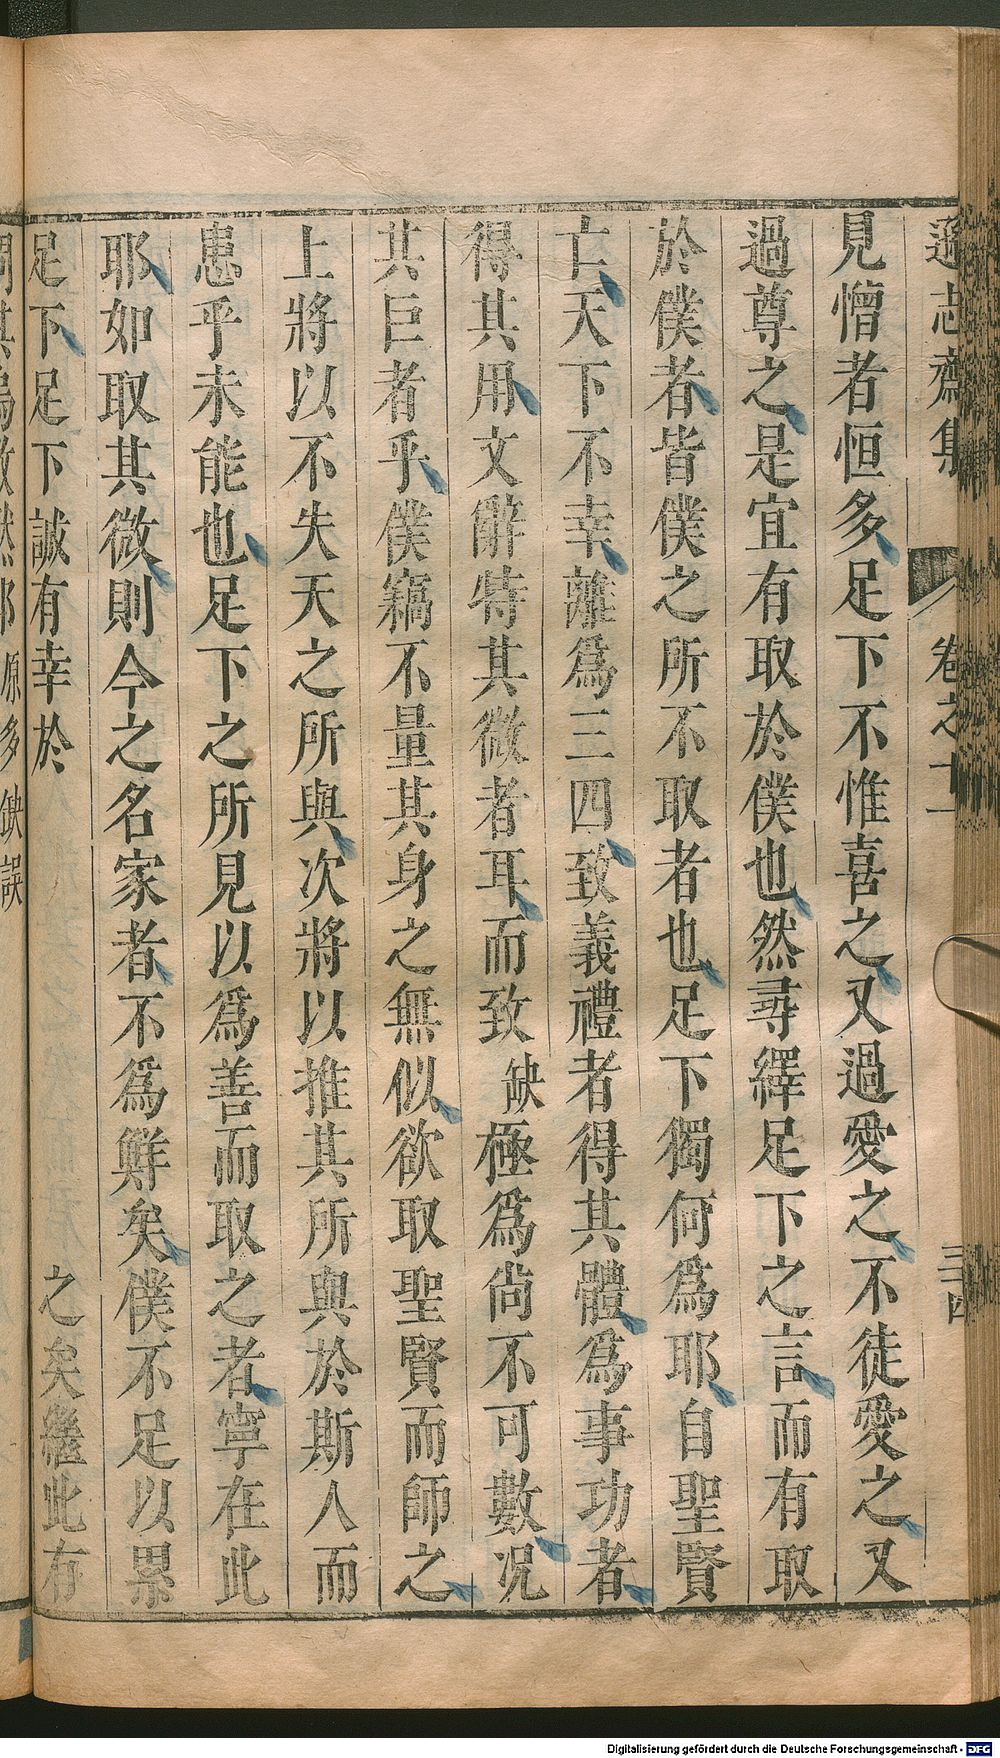 遜志齋集 卷之十一 三十四
見憎者恒多足下不惟喜之又過愛之不徒愛之又
過尊之是宜有取於僕也然尋繹足下之言而有取
於僕者皆僕之所不取者也足下獨何爲耶自聖賢
亡天下不幸離爲三四致義禮者得其體爲事功者
得其用文辭特其微者耳而致缺極爲尚不可數况
其巨者乎僕竊不量其身之無似欲取聖賢而師之
上將以不失天之所與次將以推其所與於斯人而
患乎未能也足下之所見以爲善而取之者寧在此
耶如取其微則今之名家者不爲鮮矣僕不足以累
足下足下誠有幸於 之矣繼此有
原多缺誤
Digitalisierung gefördert durch die Deutsche Forschungsgemeinschaft - DFG